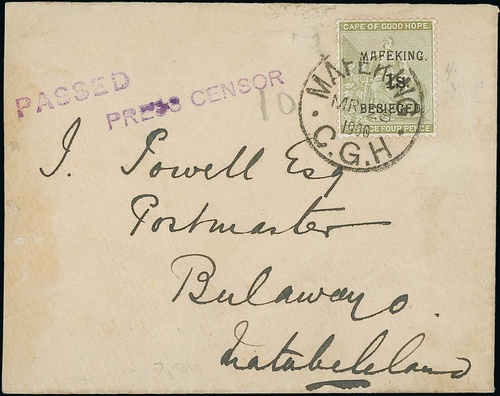 CAPE OF GOOD HOPE
MAFEKING.
1s.
BESIEGED.
POSTAGE FOUR PENCE
MAFEKING
MR 28
1900
C.G.H.
PASSED
PRESS CENSOR
10
J. Powell Esq
Postmaster
Bulawayo.
Matabeleland